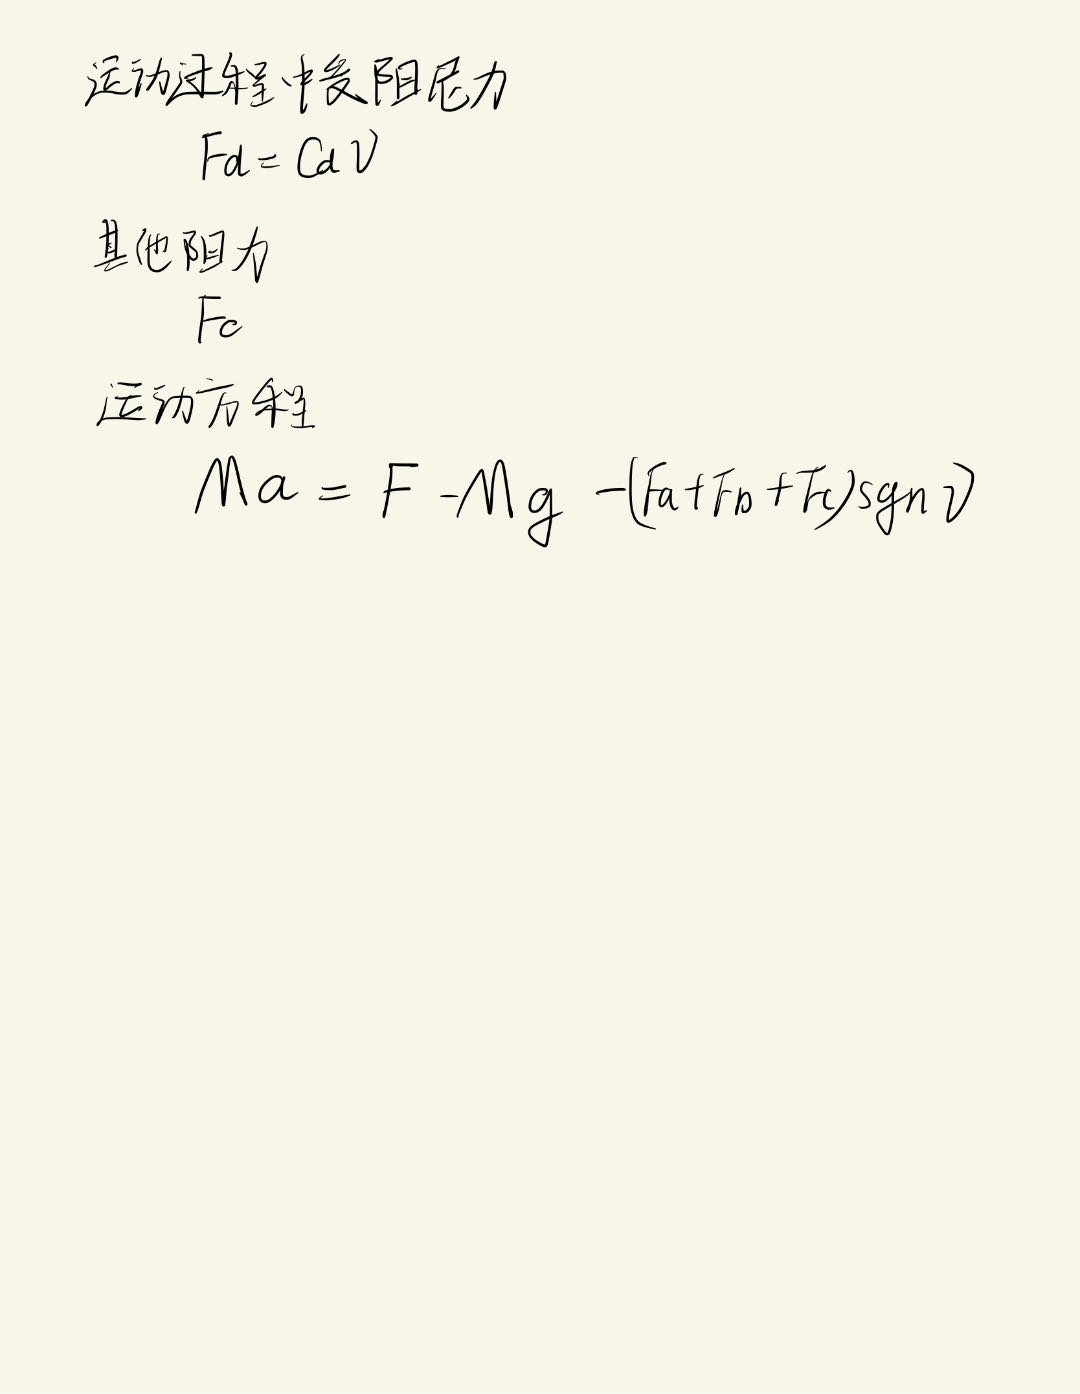 运动过程中受阻尼力
Fd = Cd v
其他阻力
Fc
运动方程
Ma = F - Mg - (Fa + Fb + Fc) sgn v